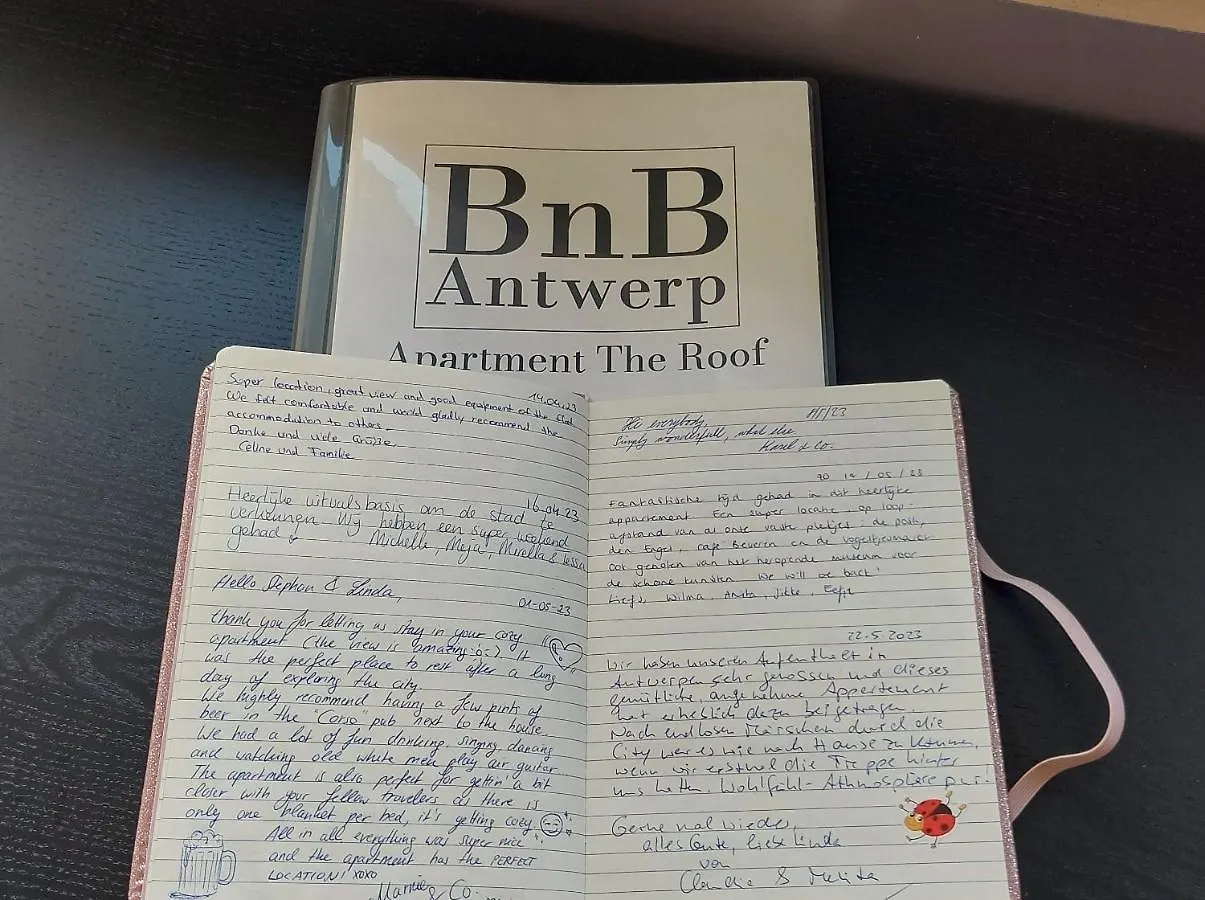 BnB
Antwerp
Apartment The Roof
14.04.23
Super location, great view and good equipment of the flat
We felt comfortable and would gladly recommend the
accommodation to others.
Danke und viele Grüße,
Celine und Familie
16-04-23
Heerlijke uitvalsbasis om de stad te
verkennen. Wij hebben een super weekend
gehad Michelle, Meja, Mirella &
Hello Stephan & Linda,
01-05-23
thank you for letting us stay in your cozy
apartment (the view is amazing :o:) It
was the perfect place to rest after a long
day of exploring the city.
We highly recommend having a few pints of
beer in the "Corso" pub next to the house.
We had a lot of fun drinking, singing, dancing
and watching old white men play air guitar
The apartment is also perfect for gettin' a bit
closer with your fellow travelers as there is
only one blanket per bed, it's getting cozy
All in all everything was super nice
and the apartment has the PERFECT
LOCATION! XOXO
& Co.
Hi everybody,
Simply wonderfull, what else
& Co.
14/05/23
Fantastische tijd gehad in dit heerlijke
appartement. Een super locatie, op loop-
afstand van al onze vaste plekjes: de
den Engel, café Beveren en de Vogeltjesmarkt
Ook genoten van het heropende museum voor
de schone kunsten. We will be back!
Liefs, Wilma, Anita, Jitte, Eefje
22.5.2023
Wir haben unseren Aufenthalt in
Antwerpen sehr genossen und dieses
gemütliche, angenehme Appartement
hat erheblich dazu beigetragen.
Nach endlosen Märschen durch die
City war es wie nach Hause zu kommen,
wenn wir erstmal die Treppe hinter
uns hatten. Wohlfühl-Athmosphäre pur!
Gerne mal wieder,
alles Gute, liebe Linda
von
Claudia & Melita